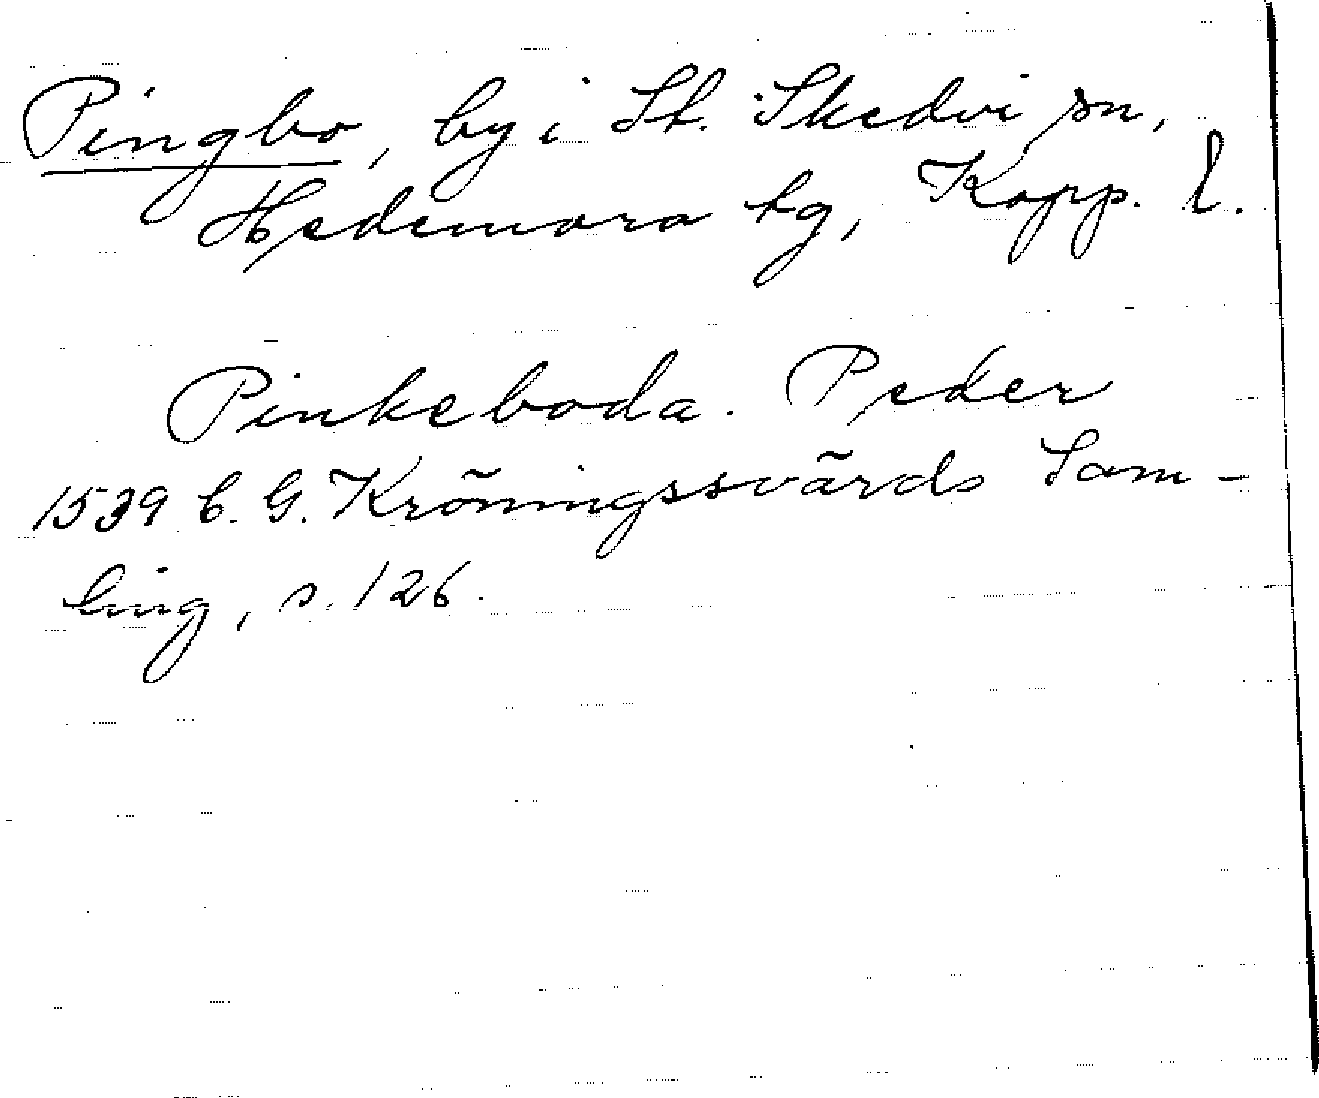 Pingbo, by i St. Skedvi sn,
Hedemora tg, Kopp. l.
Pinkeboda. Peder
1539 C. G. Kröningssvärds Sam-
ling, s. 126.